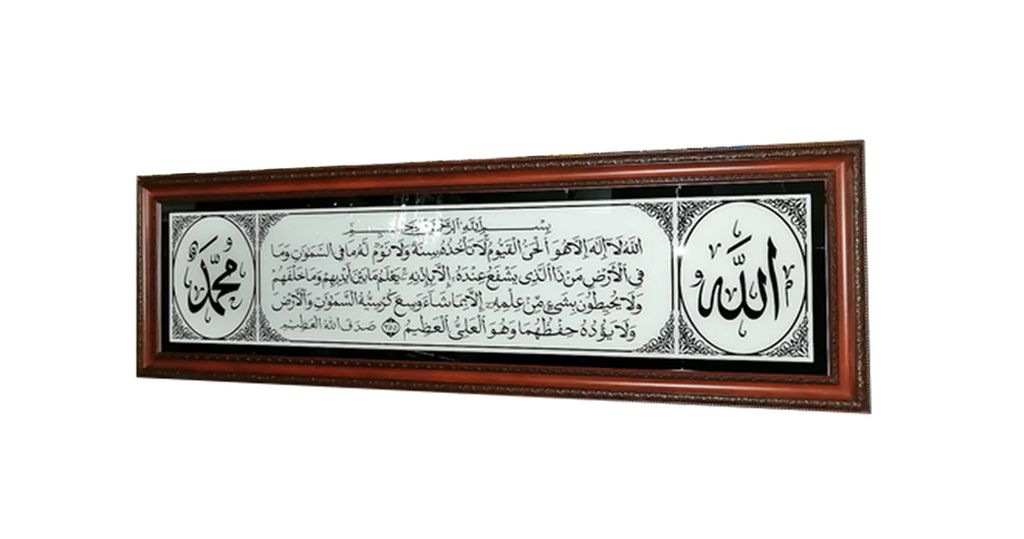 الله
بسم الله الرحمن الرحيم
الله لا إله إلا هو الحي القيوم لا تأخذه سنة ولا نوم له ما في السموات وما
في الأرض من ذا الذي يشفع عنده إلا بإذنه يعلم ما بين أيديهم وما خلفهم
ولا يحيطون بشيء من علمه إلا بما شاء وسع كرسيه السموات والأرض
ولا يؤده حفظهما وهو العلي العظيم ٢٥٥ صدق الله العظيم
محمد